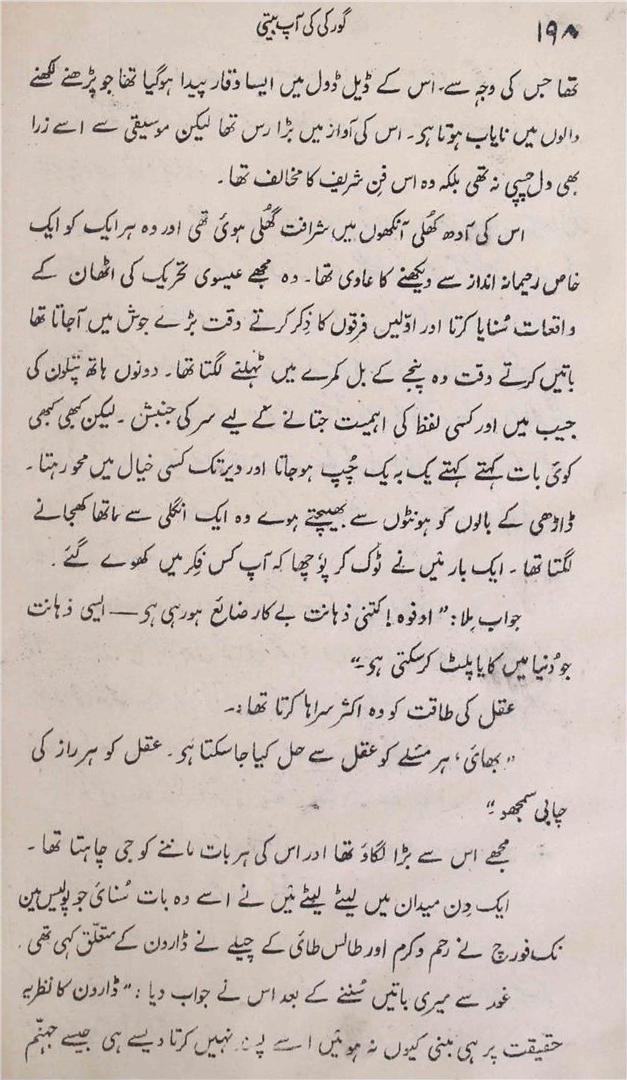 ۱۹۸
گورکی کی آپ بیتی
تھا جس کی وجہ سے اس کے ڈیل ڈول میں ایسا وقار پیدا ہوگیا تھا جو پڑھنے لکھنے
والوں میں نایاب ہوتا ہو۔ اس کی آواز میں بڑا رس تھا لیکن موسیقی سے اسے زرا
بھی دل چسپی نہ تھی بلکہ وہ اس فنِ شریف کا مخالف تھا۔
اس کی آدھ کھُلی آنکھوں میں شرافت گھُلی ہوئی تھی اور وہ ہر ایک کو ایک
خاص رحیمانہ انداز سے دیکھنے کا عادی تھا۔ وہ مجھے عیسوی تحریک کی اٹھان کے
واقعات سُنایا کرتا اور اوّلیں فرقوں کا ذِکر کرتے وقت بڑے جوش میں آجاتا تھا
باتیں کرتے وقت وہ پنجے کے بل کمرے میں ٹہلنے لگتا تھا۔ دونوں ہاتھ پتلون کی
جیب میں اور کسی لفظ کی اہمیت جتانے کے لیے سر کی جنبش۔ لیکن کبھی کبھی
کوئی بات کہتے کہتے یک بہ یک چُپ ہوجاتا اور دیر تک کسی خیال میں محو رہتا۔
ڈاڑھی کے بالوں کو ہونٹوں سے بھینچتے ہوے وہ ایک انگلی سے ماتھا کھجانے
لگتا تھا۔ ایک بار مَیں نے ٹوک کر پوُچھا کہ آپ کس فِکر میں کھوے گئے۔
جواب مِلا: "اوفوہ! کتنی ذہانت بے کار ضائع ہورہی ہو — ایسی ذہانت
جو دُنیا میں کایا پلٹ کرسکتی ہو۔"
عقل کی طاقت کو وہ اکثر سراہا کرتا تھا:۔
"بھائی، ہر مسئلے کو عقل سے حل کیا جاسکتا ہو۔ عقل کو ہر راز کی
چابی سمجھو۔"
مجھے اس سے بڑا لگاؤ تھا اور اس کی ہر بات ماننے کو جی چاہتا تھا۔
ایک دِن میدان میں لیٹے لیٹے مَیں نے اسے وہ بات سُنائی جو پولیس مین
نک فورچ نے رحم و کرم اور طالس طائی کے چیلے نے ڈارون کے متعلّق کہی تھی۔
غور سے میری باتیں سُننے کے بعد اس نے جواب دیا: "ڈارون کا نظریہ
حقیقت پر ہی مبنی کیوں نہ ہو مَیں اسے پسند نہیں کرتا ویسے ہی جیسے جہنّم